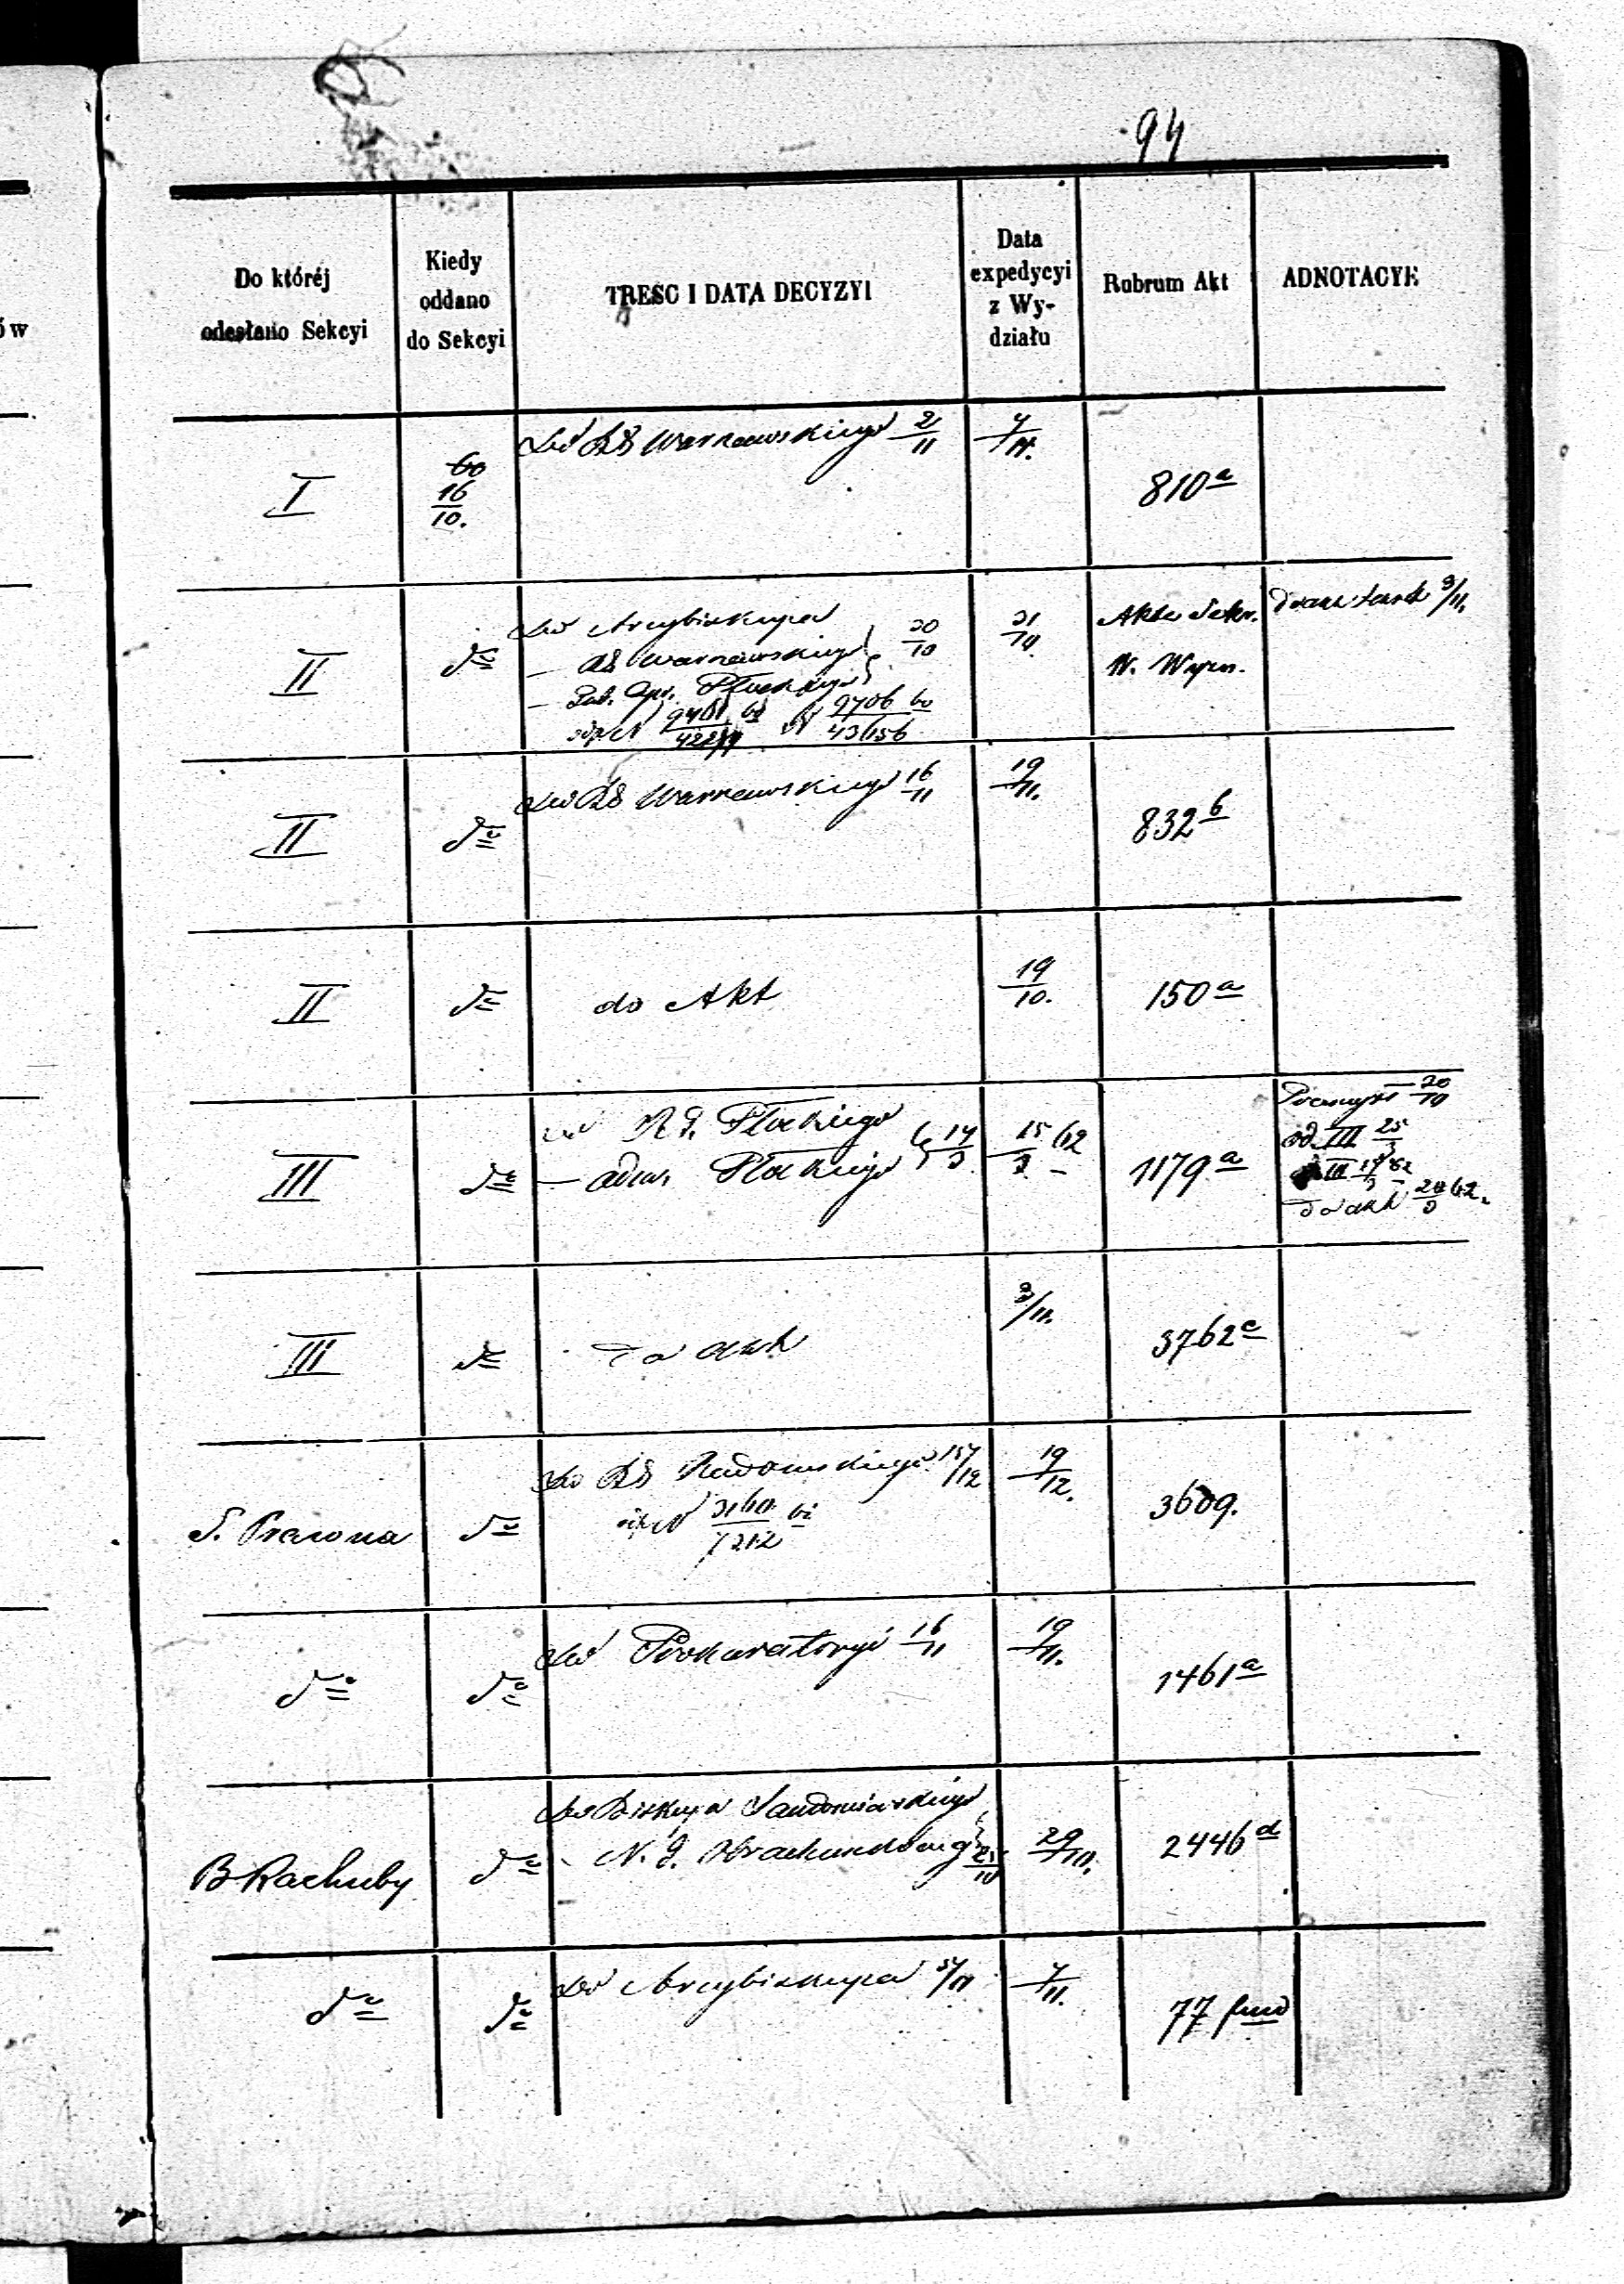 94
ów
Do któréj
odesłano Sekcyi
Kiedy
oddano
do Sekcyi
TREŚC I DATA DECYZYI
Data
expedycyi
z Wy-
działu
Rubrum Akt
ADNOTACYE
I
60
16/10.
Do RG Warszawskiego 2/11
7/11.
810 a
II
do
Do Arcybiskupa
— RG Warszawskiego 20/10
Płockiego
9706 60
43656
21/10
Akta Sekr.
W. Wyzn.
9/11.
II
do
Do RG Warszawskiego 16/11
19/11.
832 b
II
do
do Akt
19/10.
150 a
III
do
Płockiego
— Płockiego 14/3
15/3 62
1179 a
20/10
od III 25/3
III
do akt 20/3 62.
III
do
do akt
9/11.
3762 c
S. Prawna
do
Do RG Radomskiego 15/12
7212
19/12.
3609.
do
do
Do Prokuratoryi 16/11
19/11.
1461 a
B Rachuby
do
Do Biskupa Sandomierskiego
Obrachunkowej
29/10.
2446 d
do
do
Do Arcybiskupa 5/11
7/11.
77 fund